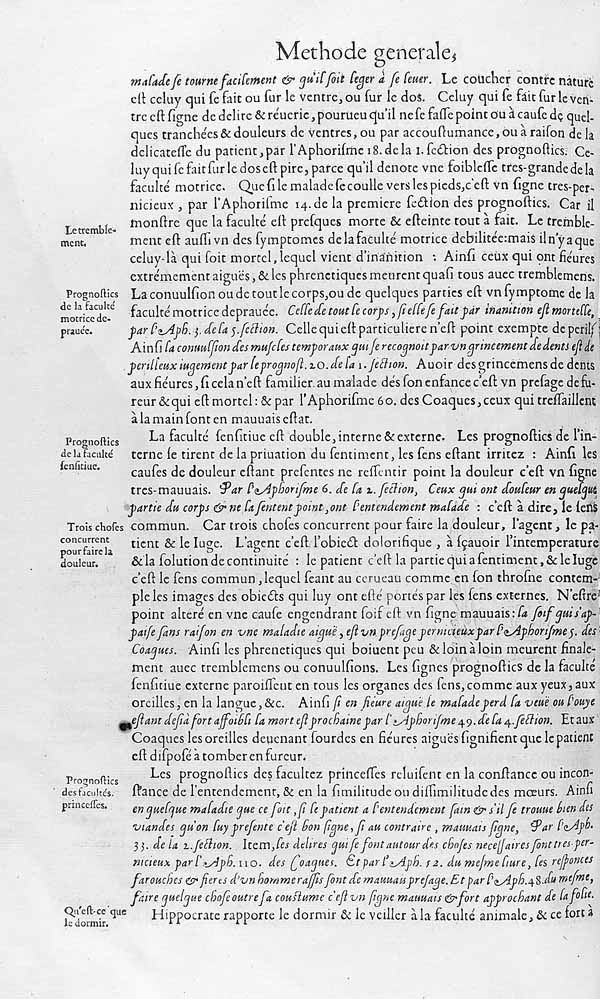 Methode generale,
malade se tourne facilement & qu'il soit leger à se leuer. Le coucher contre nature
est celuy qui se fait ou sur le ventre, ou sur le dos. Celuy qui se fait sur le ven-
tre est signe de delire & réuerie, pourueu qu'il ne se fasse point ou à cause de quel-
ques tranchées & douleurs de ventres, ou par accoustumance, ou à raison de la
delicatesse du patient, par l'Aphorisme 18. de la 1. section des prognostics. Ce-
luy qui se fait sur le dos est pire, parce qu'il denote vne foiblesse tres-grande de la
faculté motrice. Que si le malade se coulle vers les pieds, c'est vn signe tres-per-
nicieux, par l'Aphorisme 14. de la premiere section des prognostics. Car il
monstre que la faculté est presques morte & esteinte tout à fait. Le tremble-
Le tremble-
ment.
ment est aussi vn des symptomes de la faculté motrice debilitée: mais il n'y a que
celuy-là qui soit mortel, lequel vient d'inanition : Ainsi ceux qui ont fiéures
extrémement aiguës, & les phrenetiques meurent quasi tous auec tremblemens.
Prognostics
de la faculté
motrice de-
prauée.
La conuulsion ou de tout le corps, ou de quelques parties est vn symptome de la
faculté motrice deprauée. Celle de tout le corps, si elle se fait par inanition est mortelle,
par l'Aph. 3. de la 5. section. Celle qui est particuliere n'est point exempte de perils
Ainsi la conuulsion des muscles temporaux qui se recognoit par vn grincement de dents est de
perilleux iugement par le prognost. 20. de la 1. section. Auoir des grincemens de dents
aux fiéures, si cela n'est familier au malade dés son enfance c'est vn presage de fu-
reur & qui est mortel: & par l'Aphorisme 60. des Coaques, ceux qui tressaillent
à la main sont en mauuais estat.
Prognostics
de la faculté
sensitiue.
La faculté sensitiue est double, interne & externe. Les prognostics de l'in-
terne se tirent de la priuation du sentiment, les sens estant irritez : Ainsi les
causes de douleur estant presentes ne ressentir point la douleur c'est vn signe
tres-mauuais. Par l'Aphorisme 6. de la 2. section, Ceux qui ont douleur en quelque
partie du corps & ne la sentent point, ont l'entendement malade : c'est à dire, le sens
Trois choses
concurrent
pour faire la
douleur.
commun. Car trois choses concurrent pour faire la douleur, l'agent, le pa-
tient & le Iuge. L'agent c'est l'obiect dolorifique, à sçauoir l'intemperature
& la solution de continuité : le patient c'est la partie qui a sentiment, & le Iuge
c'est le sens commun, lequel seant au cerueau comme en son throsne contem-
ple les images des obiects qui luy ont esté portés par les sens externes. N'estre
point alteré en vne cause engendrant soif est vn signe mauuais: la soif qui s'ap-
paise sans raison en vne maladie aiguë, est vn presage pernicieux par l'Aphorisme 5. des
Coaques. Ainsi les phrenetiques qui boiuent peu & loin à loin meurent finale-
ment auec tremblemens ou conuulsions. Les signes prognostics de la faculté
sensitiue externe paroissent en tous les organes des sens, comme aux yeux, aux
oreilles, en la langue, &c. Ainsi si en fieure aiguë le malade perd la veuë ou l'ouye
estant desià fort affoibli la mort est prochaine par l'Aphorisme 49. de la 4. section. Et aux
Coaques les oreilles deuenant sourdes en fiéures aiguës signifient que le patient
est disposé à tomber en fureur.
Prognostics
des facultés.
princesses.
Les prognostics des facultez princesses reluisent en la constance ou incon-
stance de l'entendement, & en la similitude ou dissimilitude des mœurs. Ainsi
en quelque maladie que ce soit, si le patient a l'entendement sain & s'il se trouue bien des
viandes qu'on luy presente c'est bon signe, si au contraire, mauuais signe, Par l'Aph.
33. de la 2. section. Item, les delires qui se font autour des choses necessaires sont tres per-
nicieux par l'Aph. 110. des Coaques. Et par l'Aph. 52. du mesme liure, les responces
farouches & fieres d'vn homme rassis sont de mauuais presage. Et par l'Aph. 48. du mesme,
faire quelque chose outre sa coustume c'est vn signe mauuais & fort approchant de la folie.
Qu'est-ce que
le dormir.
Hippocrate rapporte le dormir & le veiller à la faculté animale, & ce fort à